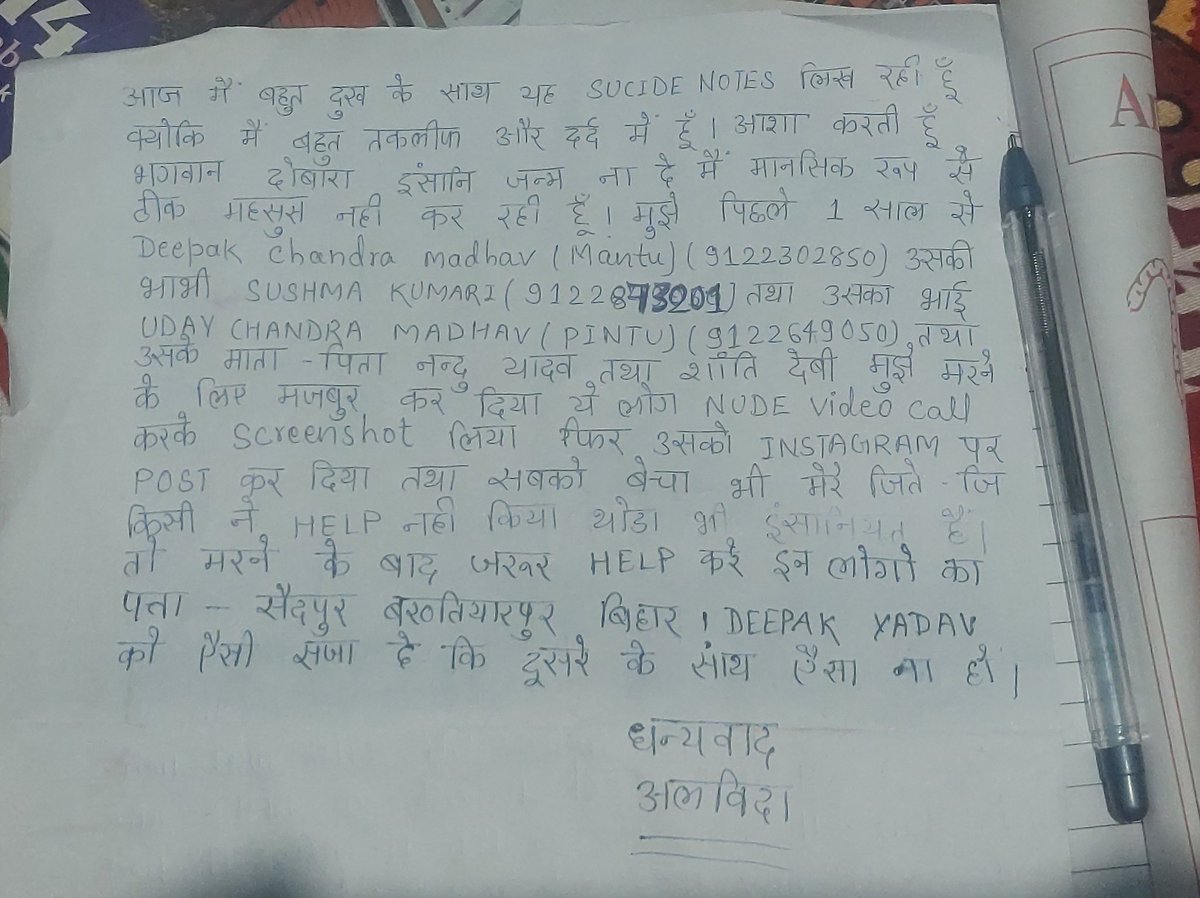 आज मैं बहुत दुख के साथ यह SUCIDE NOTES लिख रही हूँ
क्योकि मैं बहुत तकलीफ और दर्द में हूँ। आशा करती हूँ
भगवान दोबारा इंसानि जन्म ना दे मैं मानसिक रूप से
ठीक महसुस नही कर रही हूँ। मुझे पिछले 1 साल से
Deepak Chandra madhav (Mantu) (9122302850) उसकी
भाभी SUSHMA KUMARI (9122873201) तथा उसका भाई
UDAY CHANDRA MADHAV (PINTU) (9122649050) तथा
उसके माता - पिता नन्दु यादव तथा शांति देबी मुझे मरने
के लिए मजबुर कर दिया ये लोग NUDE Video Call
करके Screenshot लिया फिर उसको INSTAGRAM पर
POST कर दिया तथा सबको बेचा भी मेरे जिते - जि
किसी ने HELP नही किया थोडा भी इंसानियत हैं।
तो मरने के बाद जरूर HELP करे इन लोगो का
पता - सैदपुर बख्तियारपुर बिहार। DEEPAK YADAV
को ऐसी सजा दे कि दूसरे के साथ ऐसा ना हो।
धन्यवाद
अलविदा
A